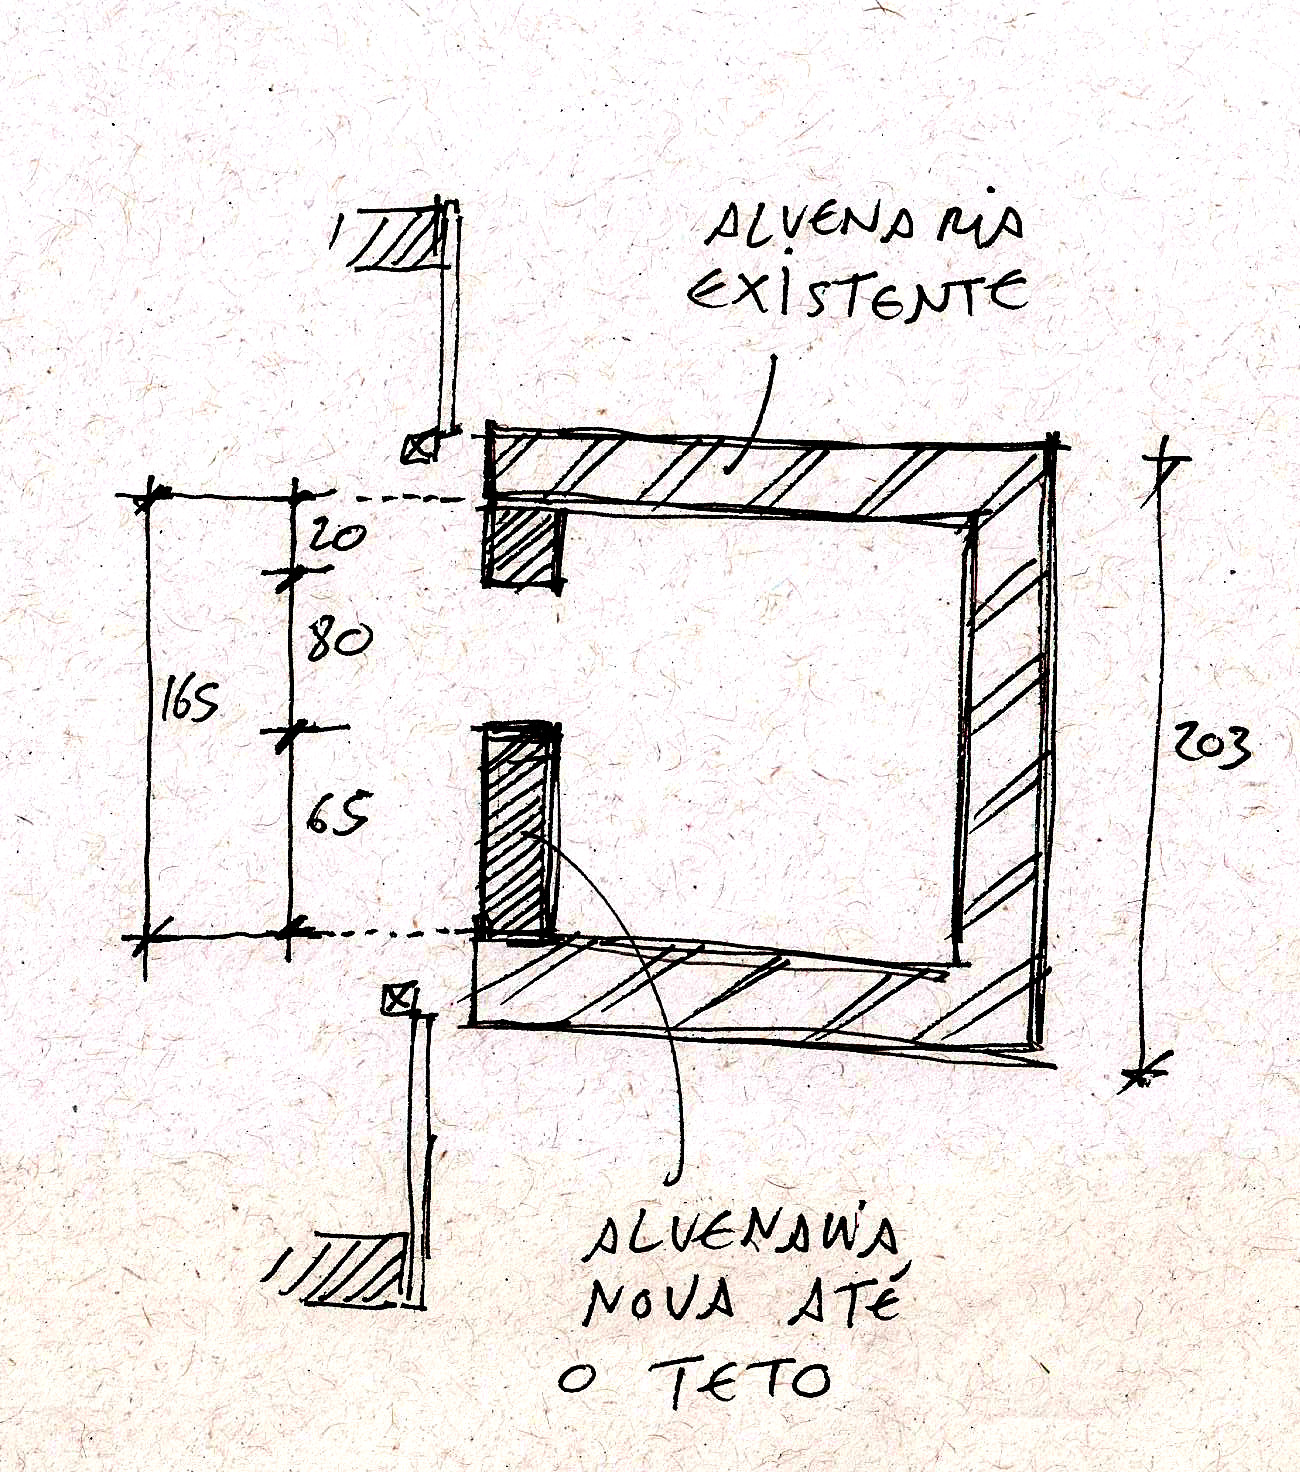 ALVENARIA
EXISTENTE
20
80
165
65
203
ALVENARIA
NOVA ATÉ
O TETO